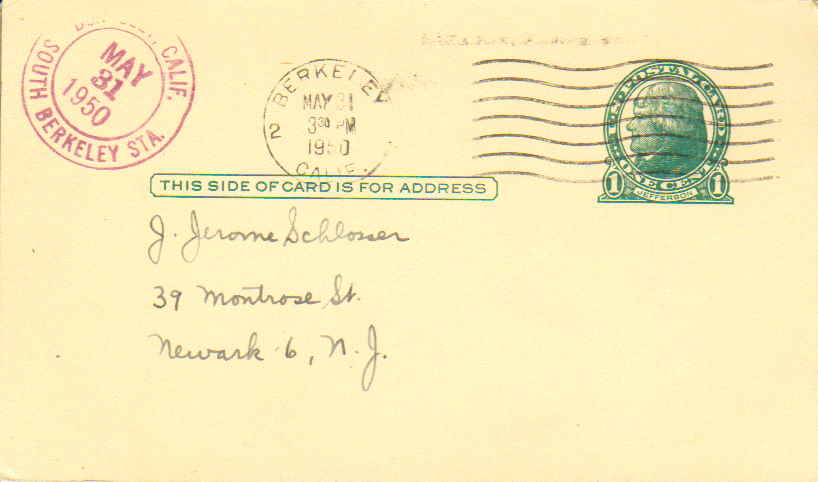 BERKELEY, CALIF.
MAY
31
1950
SOUTH BERKELEY STA.
BERKELEY
MAY 31
3 30 PM
1950
CALIF.
2
U.S. POSTAL CARD
1 ONE CENT 1
JEFFERSON
THIS SIDE OF CARD IS FOR ADDRESS
J. Jerome Schlosser
39 Montrose St.
Newark 6, N. J.